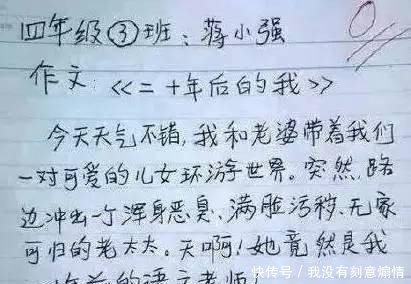 四年级③班：蒋小强
作文：《二十年后的我》
今天天气不错，我和老婆带着我们
一对可爱的儿女环游世界。突然，路
边冲出一个浑身恶臭、满脸污秽、无家
可归的老太太。天啊！她竟然是我
年前的语文老师！
快传号 / 我没有刻意煽情